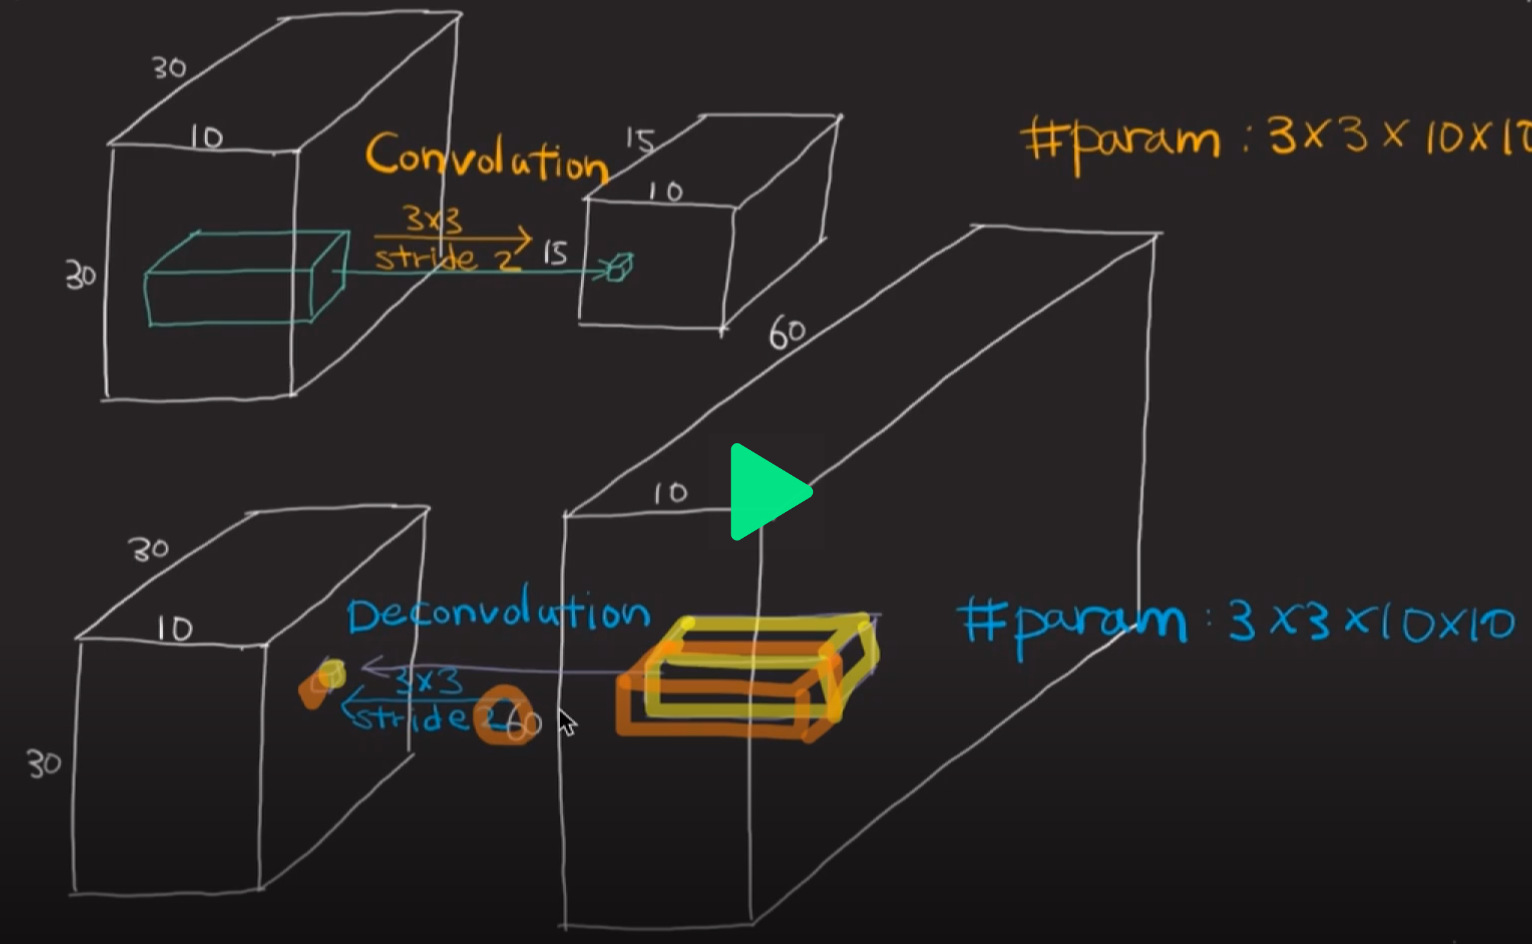 30
10
Convolution
3x3
stride 2
30
15
10
15
#param : 3x3 x 10x10
60
10
30
10
Deconvolution
3x3
stride 2
60
30
#param : 3x3x10x10